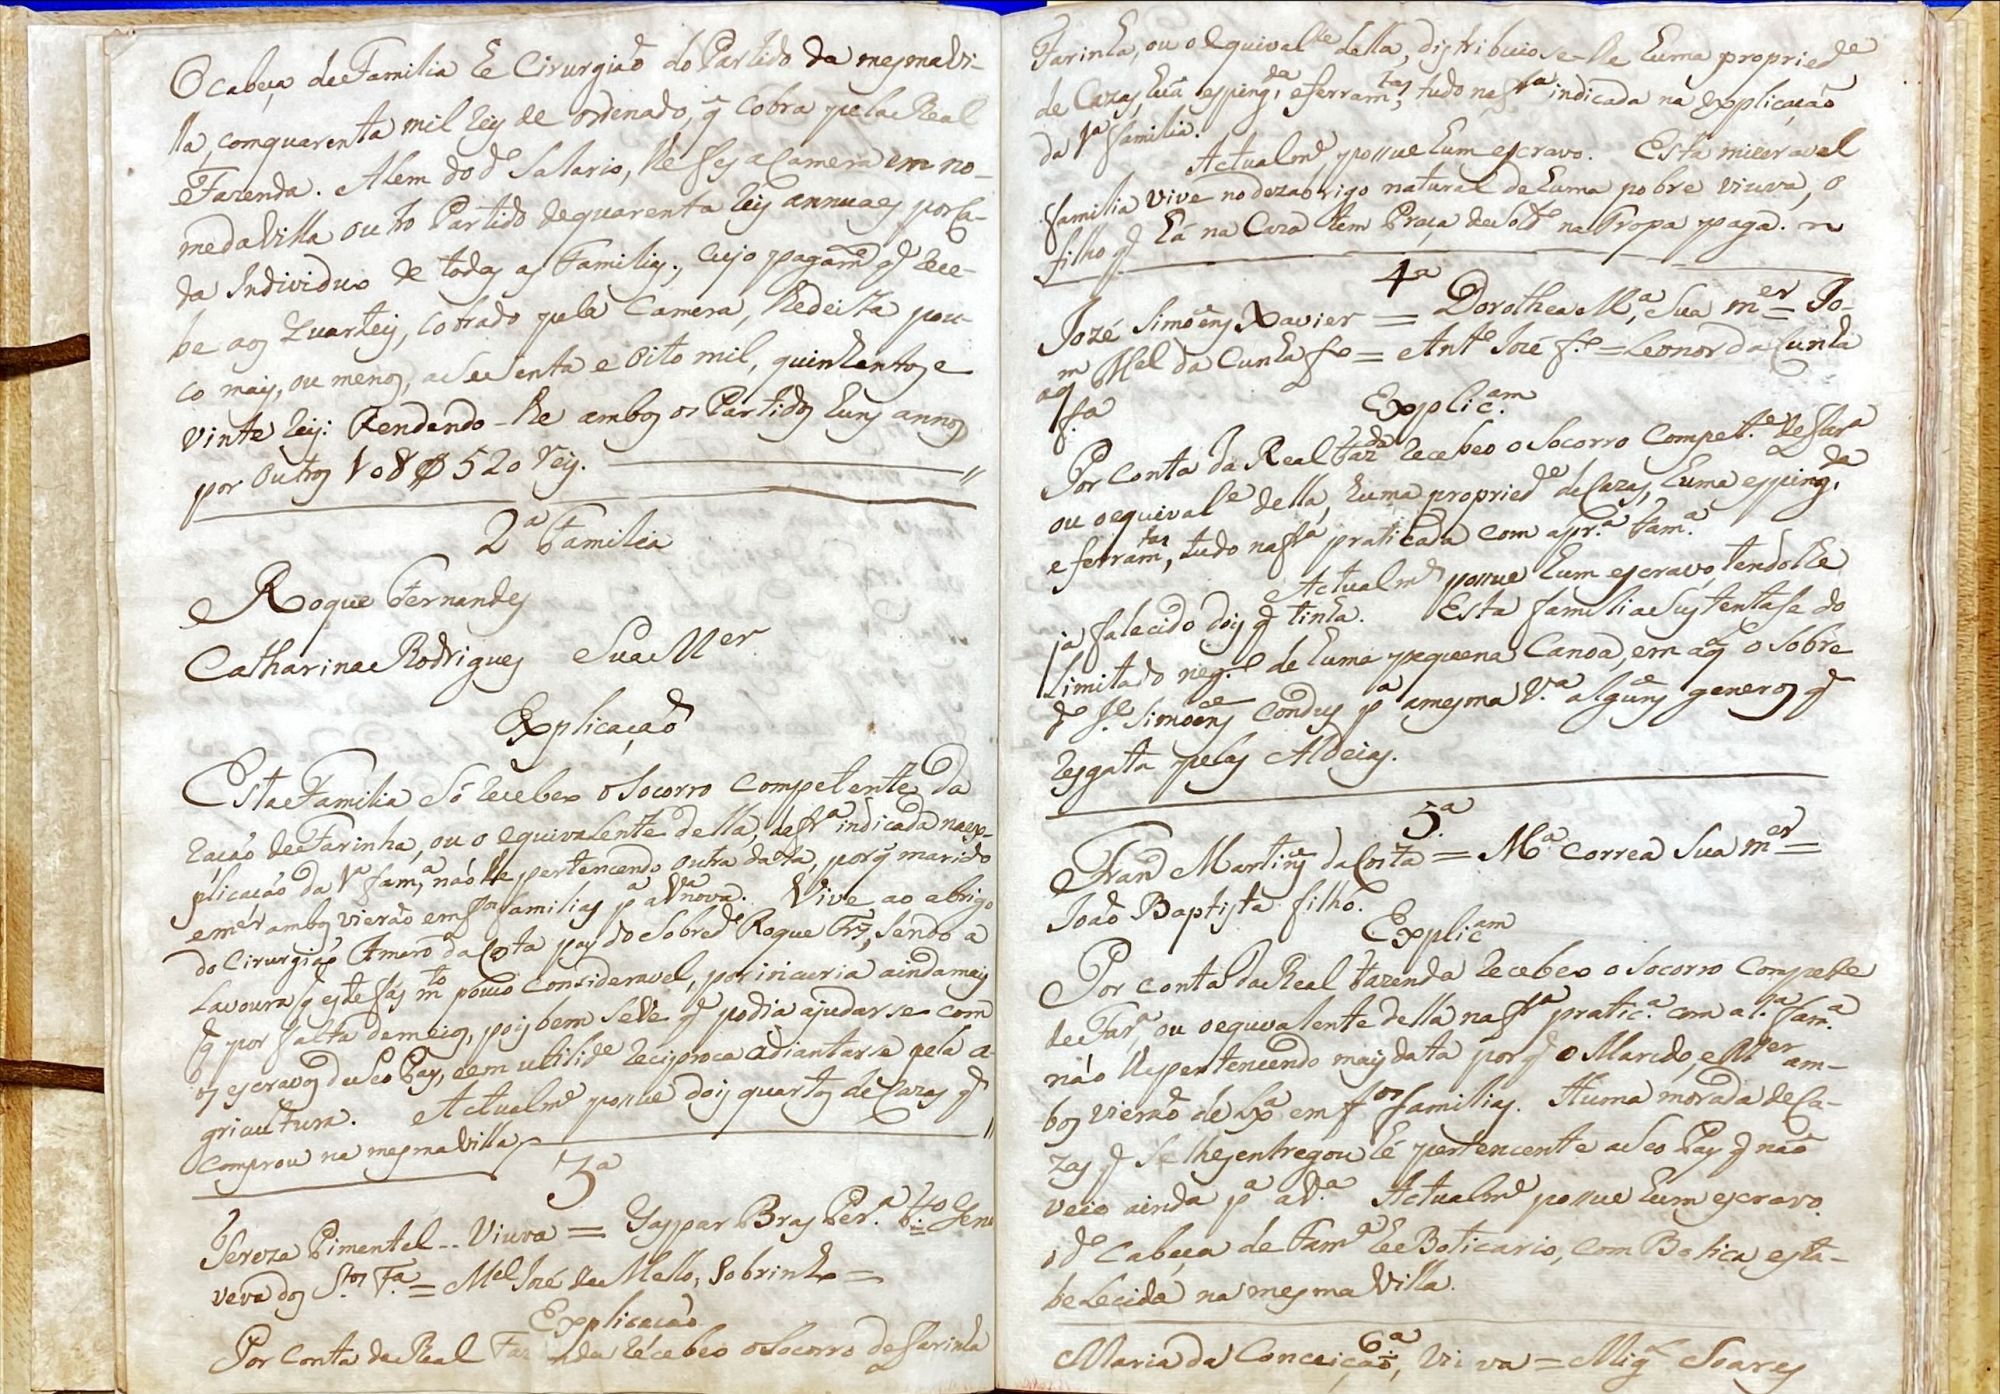 O cabeça de Familia he Cirurgiaõ do Partido da mesma Vi-
lla, com quarenta mil reis de ordenado, q̃ cobra pela Real
Fazenda. Alem do dº Salario, lhe fes a Camera em no-
me da Villa outro Partido de quarenta reis annuaes por ca-
da Individuo de todas as Familias, cujo pagamtº q̃ rece-
be aos Quarteis, cobrado pela Camera, lhe deita pou-
co mais, ou menos, a secenta e oito mil, quinhentos e
vinte reis: Rendendo-lhe ambos os Partidos huns annos
por outros 108$520 reis.
2ª Familia
Roque Fernandes
Catharina Rodrigues Sua Mer.
Explicaçaõ
Esta Familia só recebeo o Socorro competente da
raçaõ de Farinha, ou o equivalente della, na frª indicada na ex-
plicacaõ da 1ª famª, naõ lhe pertencendo outra data, porq̃ marido
e mer ambos vieraõ em fos familias pª a Vª nova. Vive ao abrigo
do Cirurgiaõ Amaro da Costa pay do sobredº Roque Frz, sendo a
Lavoura q̃ este fás mtº pouco consideravel, por incuria ainda mais
q̃ por falta de meios, pois bem se vê q̃ podia ajudarse com
os escravos de seo Pay, e em utilide reciproca adiantarse pela a-
gricultura. Actualmte possue dois quartos de Cazas q̃
comprou na mesma Villa,
3ª
Tereza Pimentel -- Viuva = Gaspar Bras Perª fº = Geno
veva dos Stos Fª = Mel José de Mello, Sobrinho =
Explicacaõ
Por conta da Real Fazenda recebeo o Socorro de farinha
Farinha, ou o equivalte della, distribuio se-lhe huma propriede
de Cazas, huã espingda, e ferramtas, tudo na frª indicada na explicaçaõ
da 1ª familia.
Actualmte possue hum escravo. Esta miseravel
familia vive no dezabrigo natural de huma pobre viuva, o
filho q̃ há na Caza tem Praça de Soldº na Tropa paga.
4ª
Jozé Simoẽns Xavier = Dorothea Mª, Sua mer = Jo-
aqm Mel da Cunha fº = Antº José fº = Leonor da Cunha
fª
Explicam
Por conta da Real Fazda recebeo o Socorro compette de farª
ou o equivalte della, huma propriede de Cazas, huma espingda
e ferramtas, tudo na frª praticada com a prª famª
Actualmte possue hum escravo, tendo lhe
já falecido dois q̃ tinha. Esta familia sustentase do
limitado negº de huma pequena Canoa, em a q̃ o sobre
dº Jº Simoẽns Condus pª a mesma Vª alguns generos q̃
resgata pelas Aldeias.
5ª
Francº Martins da Costa = Mª Correa Sua mer =
Joaõ Baptista filho.
Explicam
Por conta da Real fazenda recebeo o Socorro compette
de Farª ou o equivalente della na frª praticª com a 1ª famª
naõ lhe pertencendo mais data por q̃ o Marido, e Mer am-
bos vieraõ de Lxª em fos familias. Huma morada de Ca-
zas q̃ se lhes entregou hé pertencente a seo Pay q̃ naõ
veio ainda pª a Vª Actualmte possue hum escravo.
O dº Cabeça de Famª he Boticario, com Botica esta-
belecida na mesma Villa.
6ª
Maria da Conceiçaõ, Viuva = Migl Soares